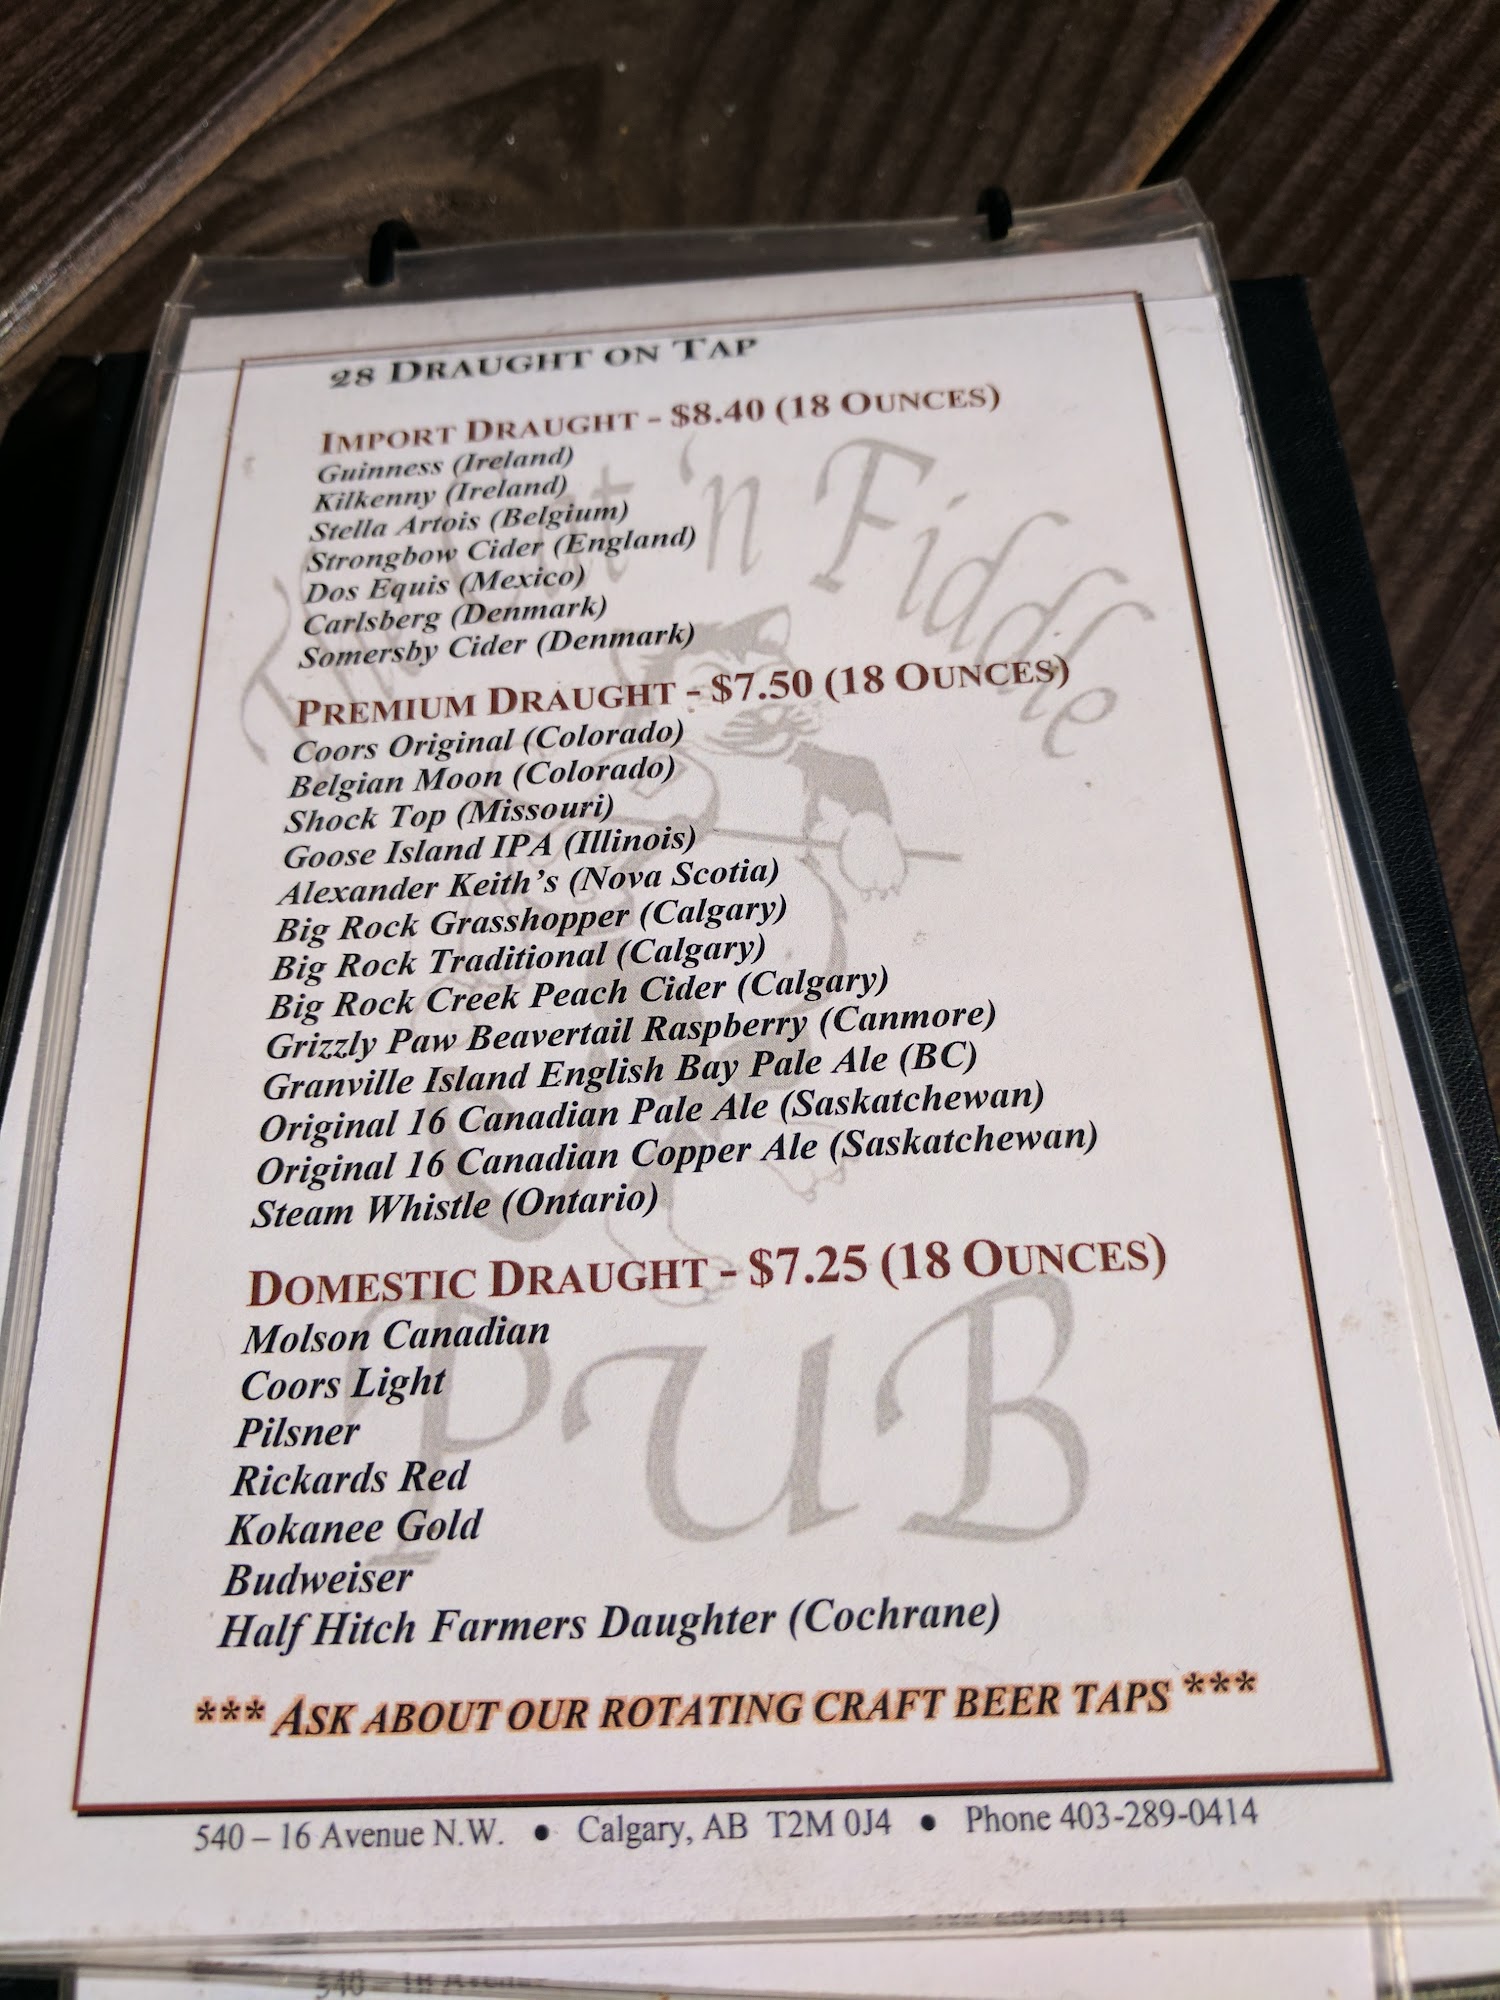 28 DRAUGHT ON TAP
IMPORT DRAUGHT - $8.40 (18 OUNCES)
Guinness (Ireland)
Kilkenny (Ireland)
Stella Artois (Belgium)
Strongbow Cider (England)
Dos Equis (Mexico)
Carlsberg (Denmark)
Somersby Cider (Denmark)
PREMIUM DRAUGHT - $7.50 (18 OUNCES)
Coors Original (Colorado)
Belgian Moon (Colorado)
Shock Top (Missouri)
Goose Island IPA (Illinois)
Alexander Keith's (Nova Scotia)
Big Rock Grasshopper (Calgary)
Big Rock Traditional (Calgary)
Big Rock Creek Peach Cider (Calgary)
Grizzly Paw Beavertail Raspberry (Canmore)
Granville Island English Bay Pale Ale (BC)
Original 16 Canadian Pale Ale (Saskatchewan)
Original 16 Canadian Copper Ale (Saskatchewan)
Steam Whistle (Ontario)
DOMESTIC DRAUGHT - $7.25 (18 OUNCES)
Molson Canadian
Coors Light
Pilsner
Rickards Red
Kokanee Gold
Budweiser
Half Hitch Farmers Daughter (Cochrane)
*** ASK ABOUT OUR ROTATING CRAFT BEER TAPS ***
540 – 16 Avenue N.W. • Calgary, AB T2M 0J4 • Phone 403-289-0414
'n Fiddle
PUB